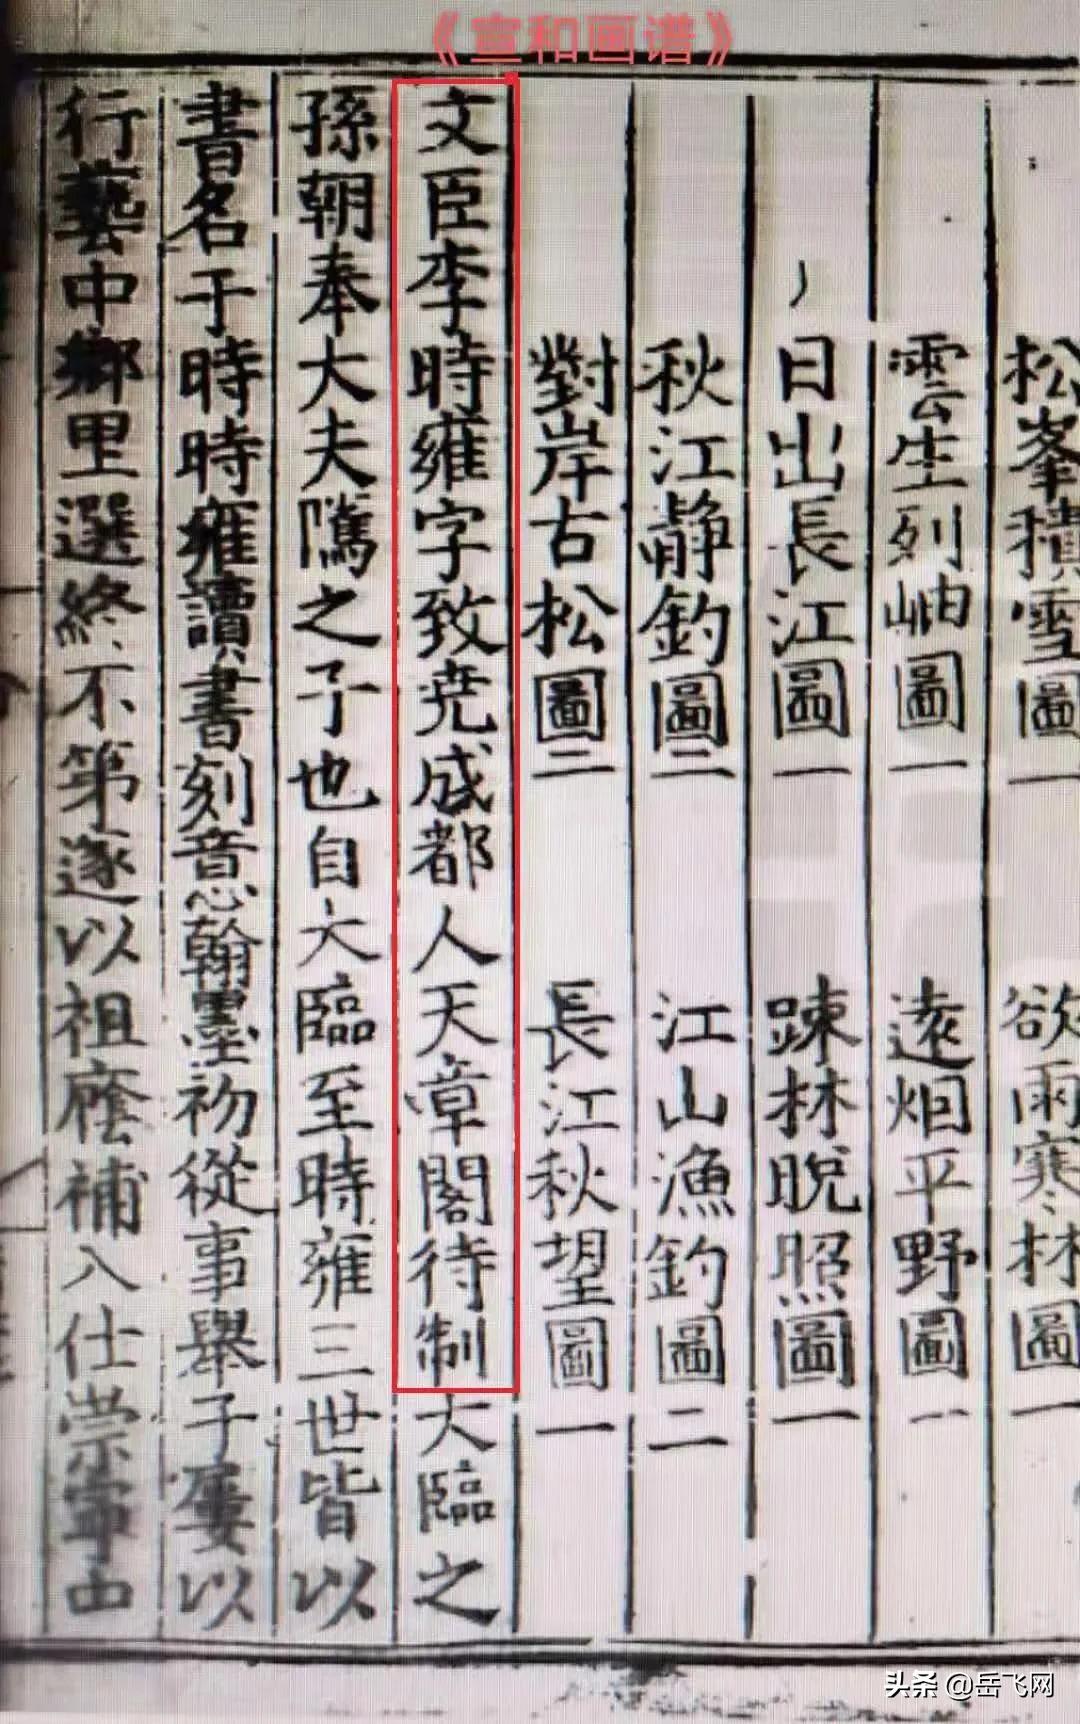 《宣和画谱》
松峯積雪圖一　欲雨寒林圖一
雲生列岫圖一　遠烟平野圖一
日出長江圖一　踈林晚照圖一
秋江靜釣圖二　江山漁釣圖二
對岸古松圖二　長江秋望圖一
文臣李時雍字致堯成都人天章閣待制大臨之
孫朝奉大夫騭之子也自大臨至時雍三世皆以
書名于時時雍讀書刻意翰墨初從事舉子屢以
行藝中鄉里選終不第遂以祖廕補入仕崇寧中
头条 @岳飞网